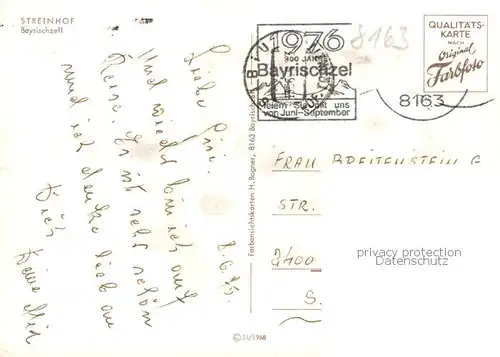 STREINHOF
Bayrischzell
Liebe Pini.
8.6.75.
Und wieder bin ich auf
Reise. Es ist sehr schön
und ich denke lieb an
Dich
Deine
Farbansichtskarten H. Bogner, 8163 Bayrischzell
© 51/1968
1976
900 JAHRE
Bayrischzell
feiern Sie mit uns
von Juni-September
8163
8163
QUALITÄTS-
KARTE
NACH
Original
Farbfoto
FRAU BREITENSTEIN G
STR.
2400
S.
privacy protection
Datenschutz